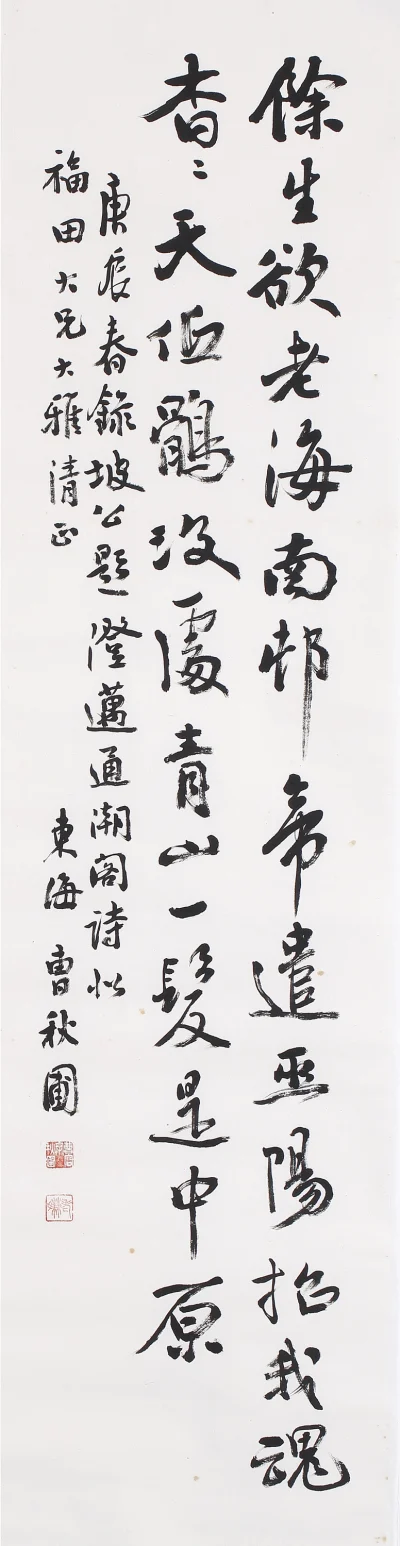 餘生欲老海南邨帝遣巫陽招我魂
杳〻天低鶻没處青山一髮是中原
庚辰春錄坡公題澄邁通潮閣詩似
福田大兄大雅清正 東海曹秋圃